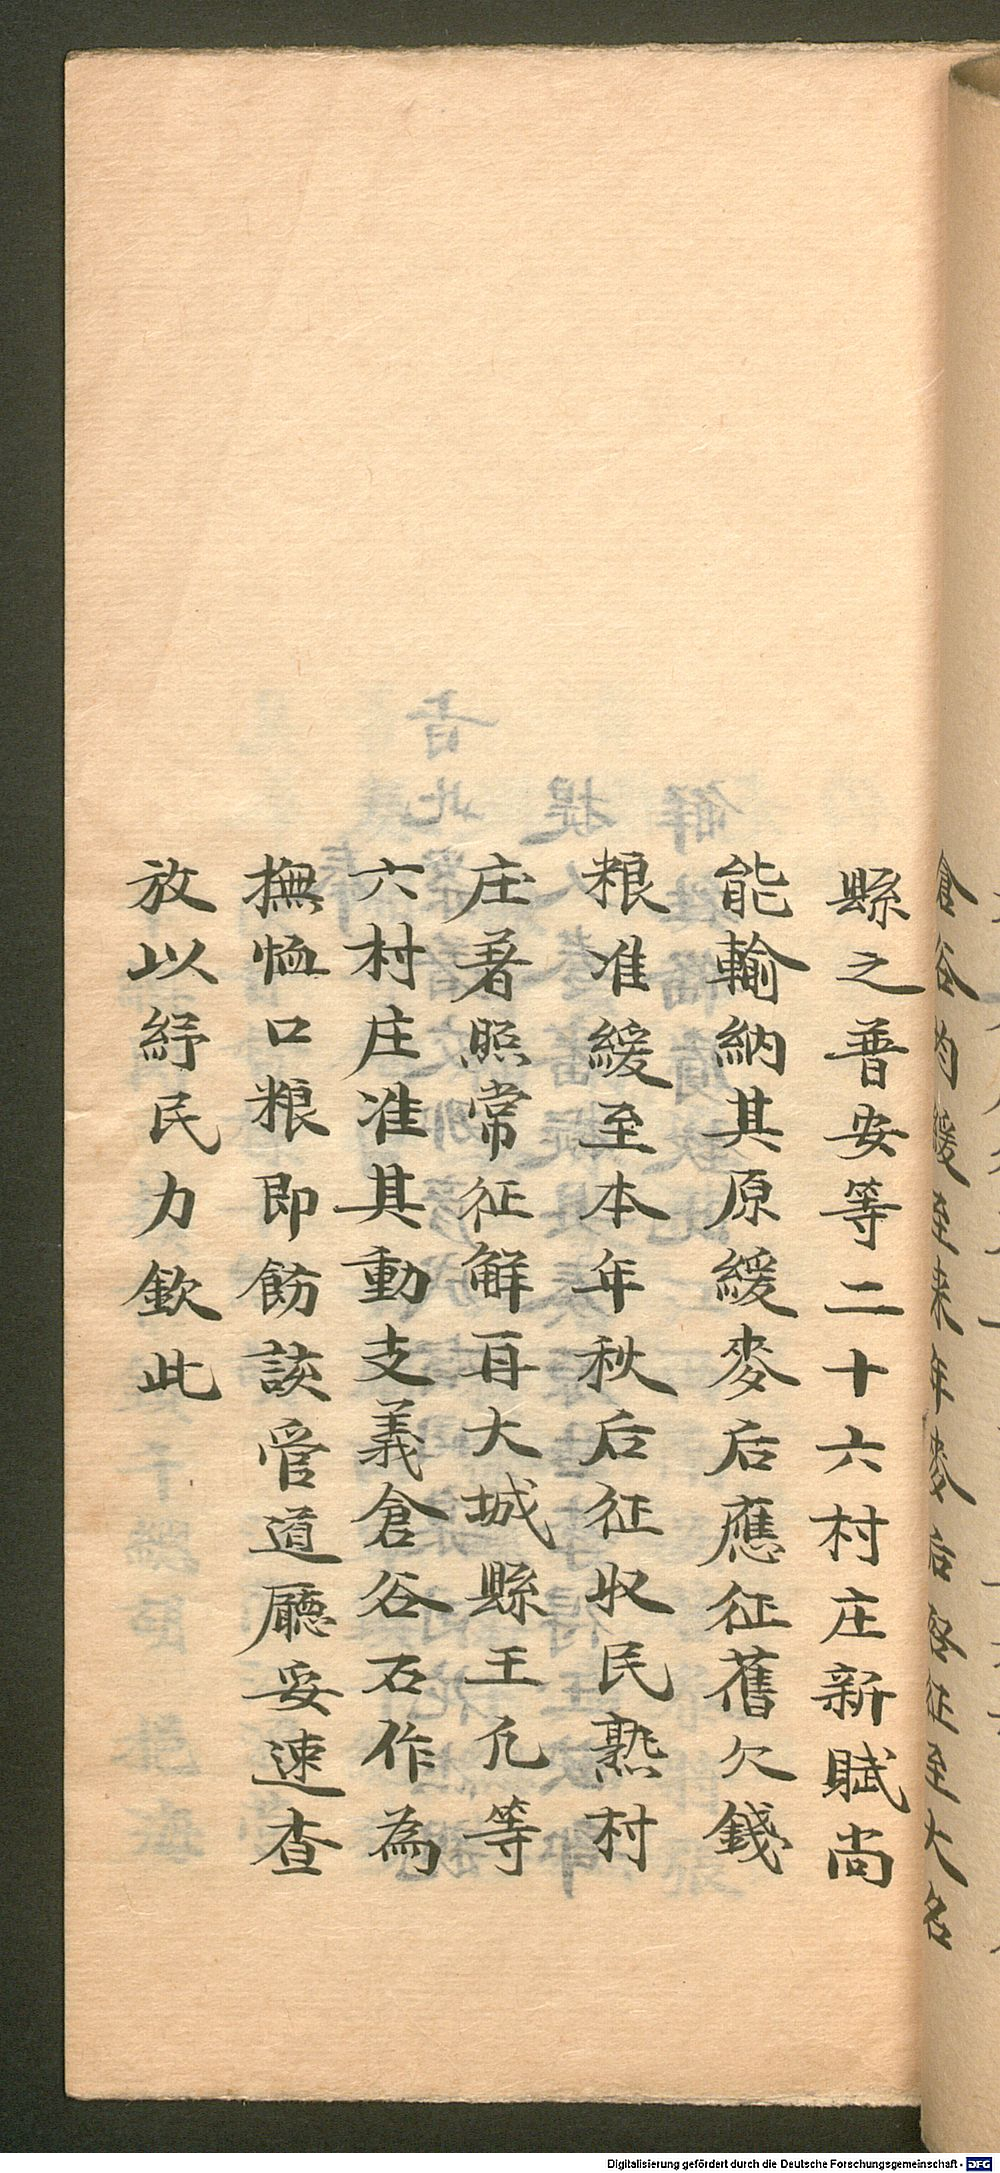 倉谷均緩至来年麥后啓征至大名
縣之普安等二十六村庄新賦尚
能輸納其原緩麥后應征舊欠錢
粮准緩至本年秋后征收民熟村
庄著照常征解再大城縣王凢等
六村庄准其動支義倉谷石作為
撫恤口粮即飭該管道廳妥速查
放以紓民力欽此
Digitalisierung gefördert durch die Deutsche Forschungsgemeinschaft - DFG